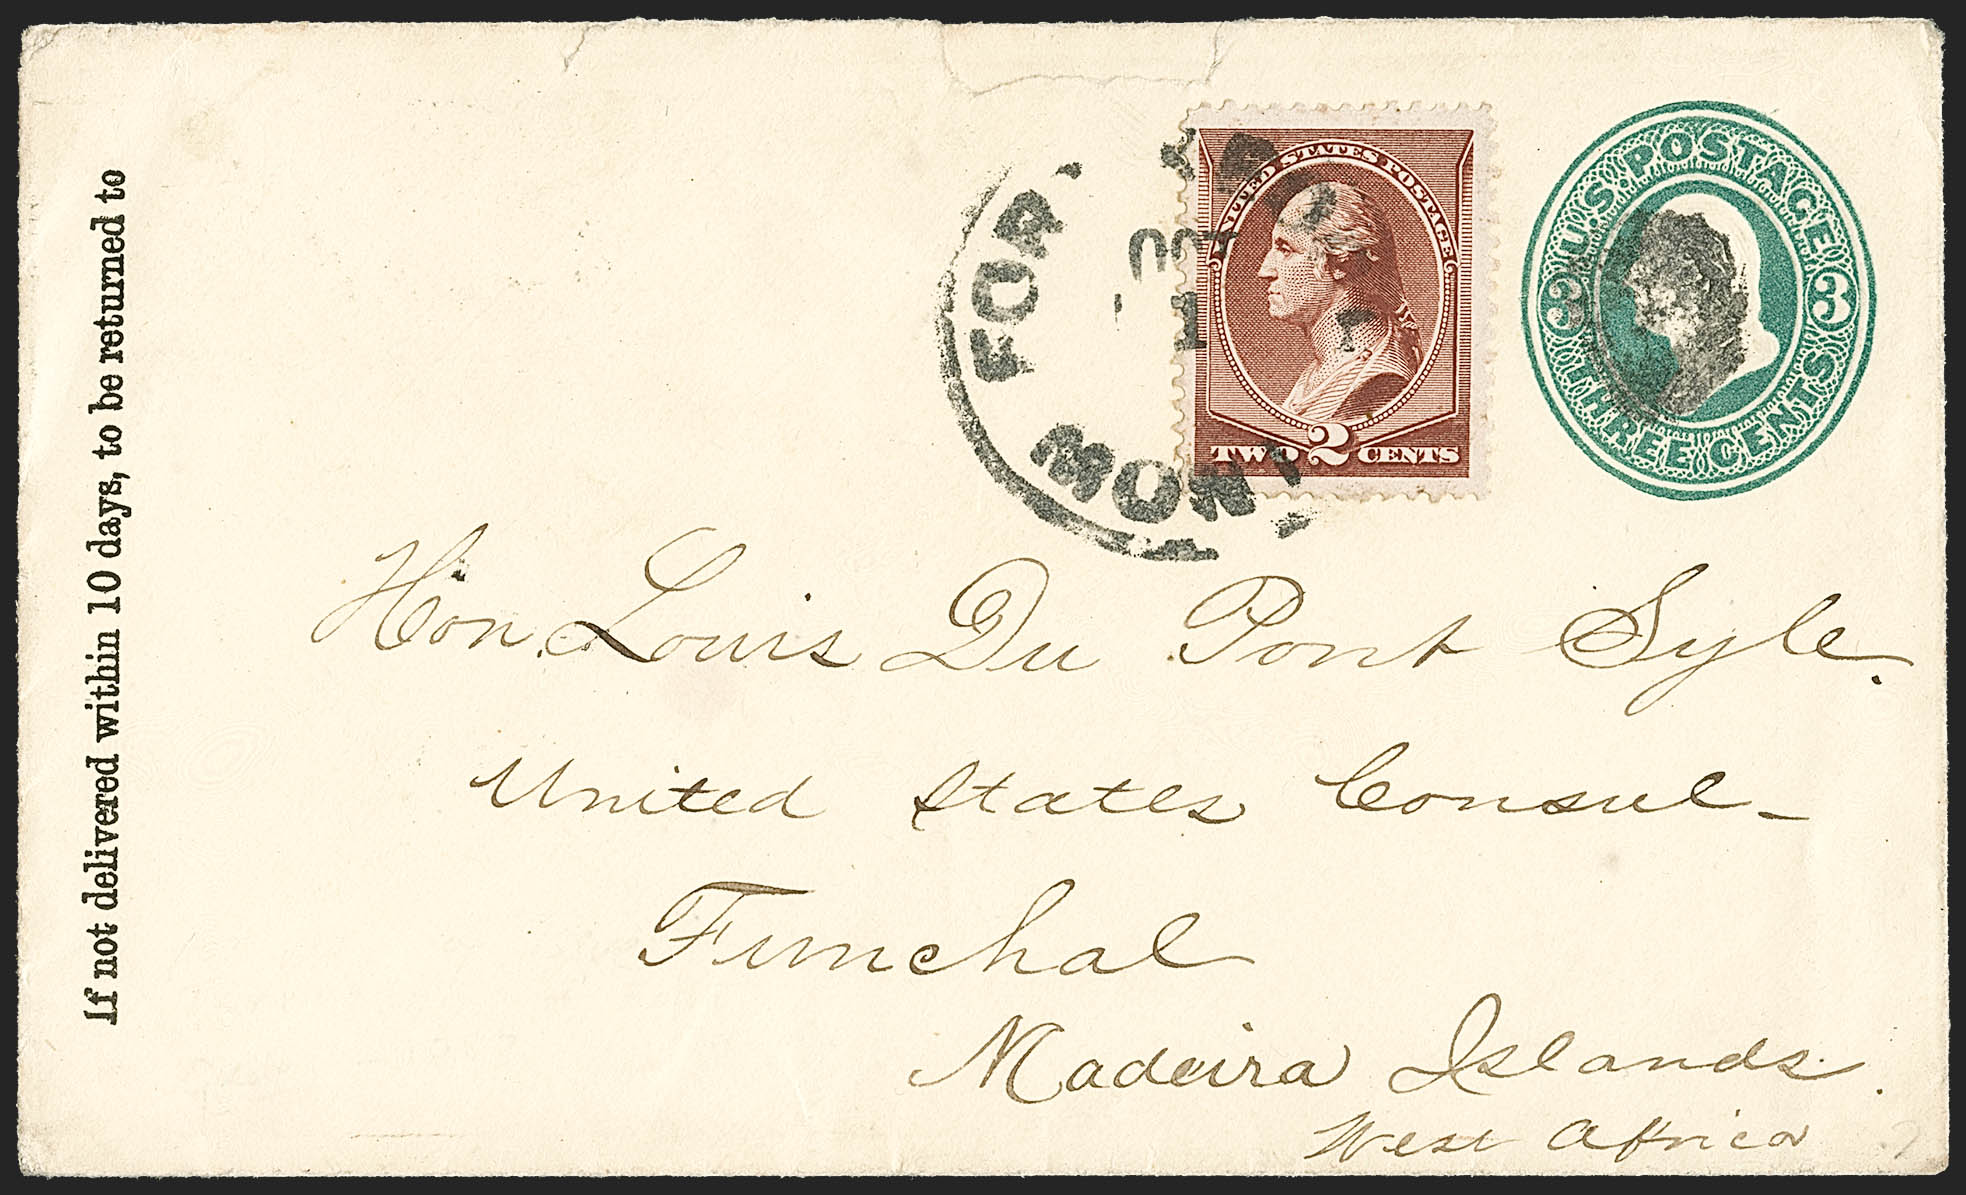 If not delivered within 10 days, to be returned to
UNITED STATES POSTAGE
TWO 2 CENTS
U.S. POSTAGE
3 3
THREE CENTS
FOR
MONT
Hon. Louis Du Pont Syle.
United States Consul-
Funchal
Madeira Islands.
West Africa